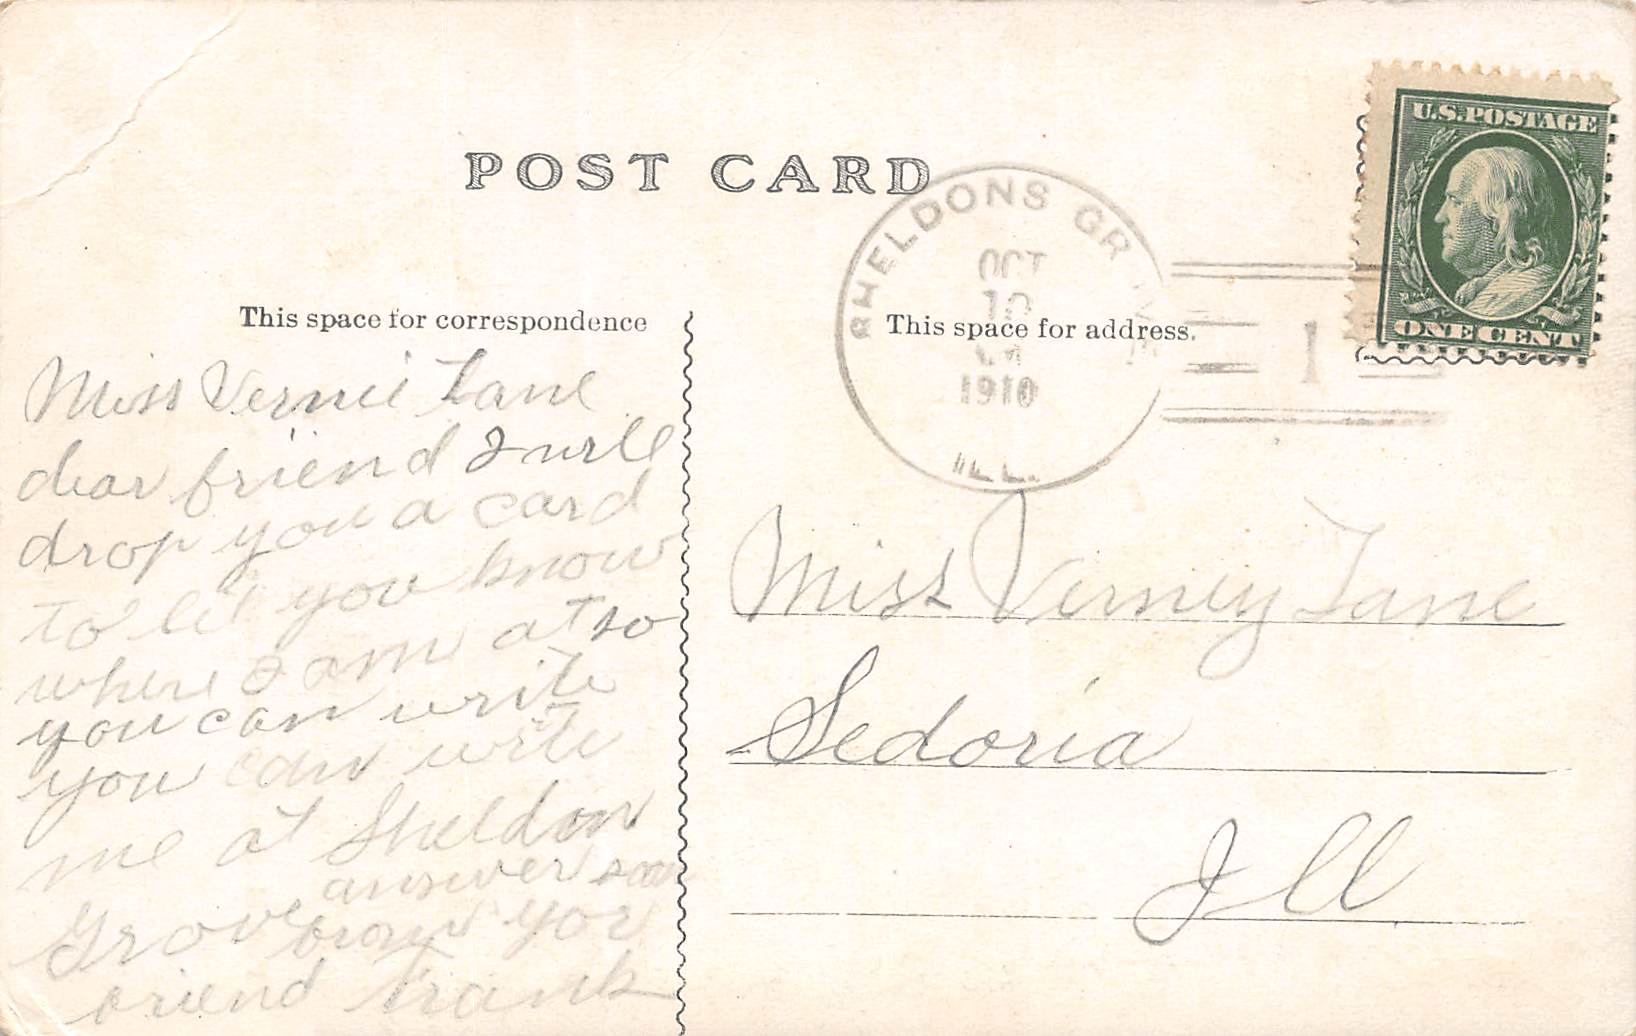 POST CARD
U.S. POSTAGE
ONE CENT
SHELDONS GR
OCT
1910
ILL.
1
This space for correspondence
This space for address.
Miss Vernie Lane
dear friend I will
drop you a card
to let you know
where I am at so
you can write
you can write
me at Sheldon
Grove answer soon
from your
friend Frank
Miss Verney Lane
Sedoria
Ill